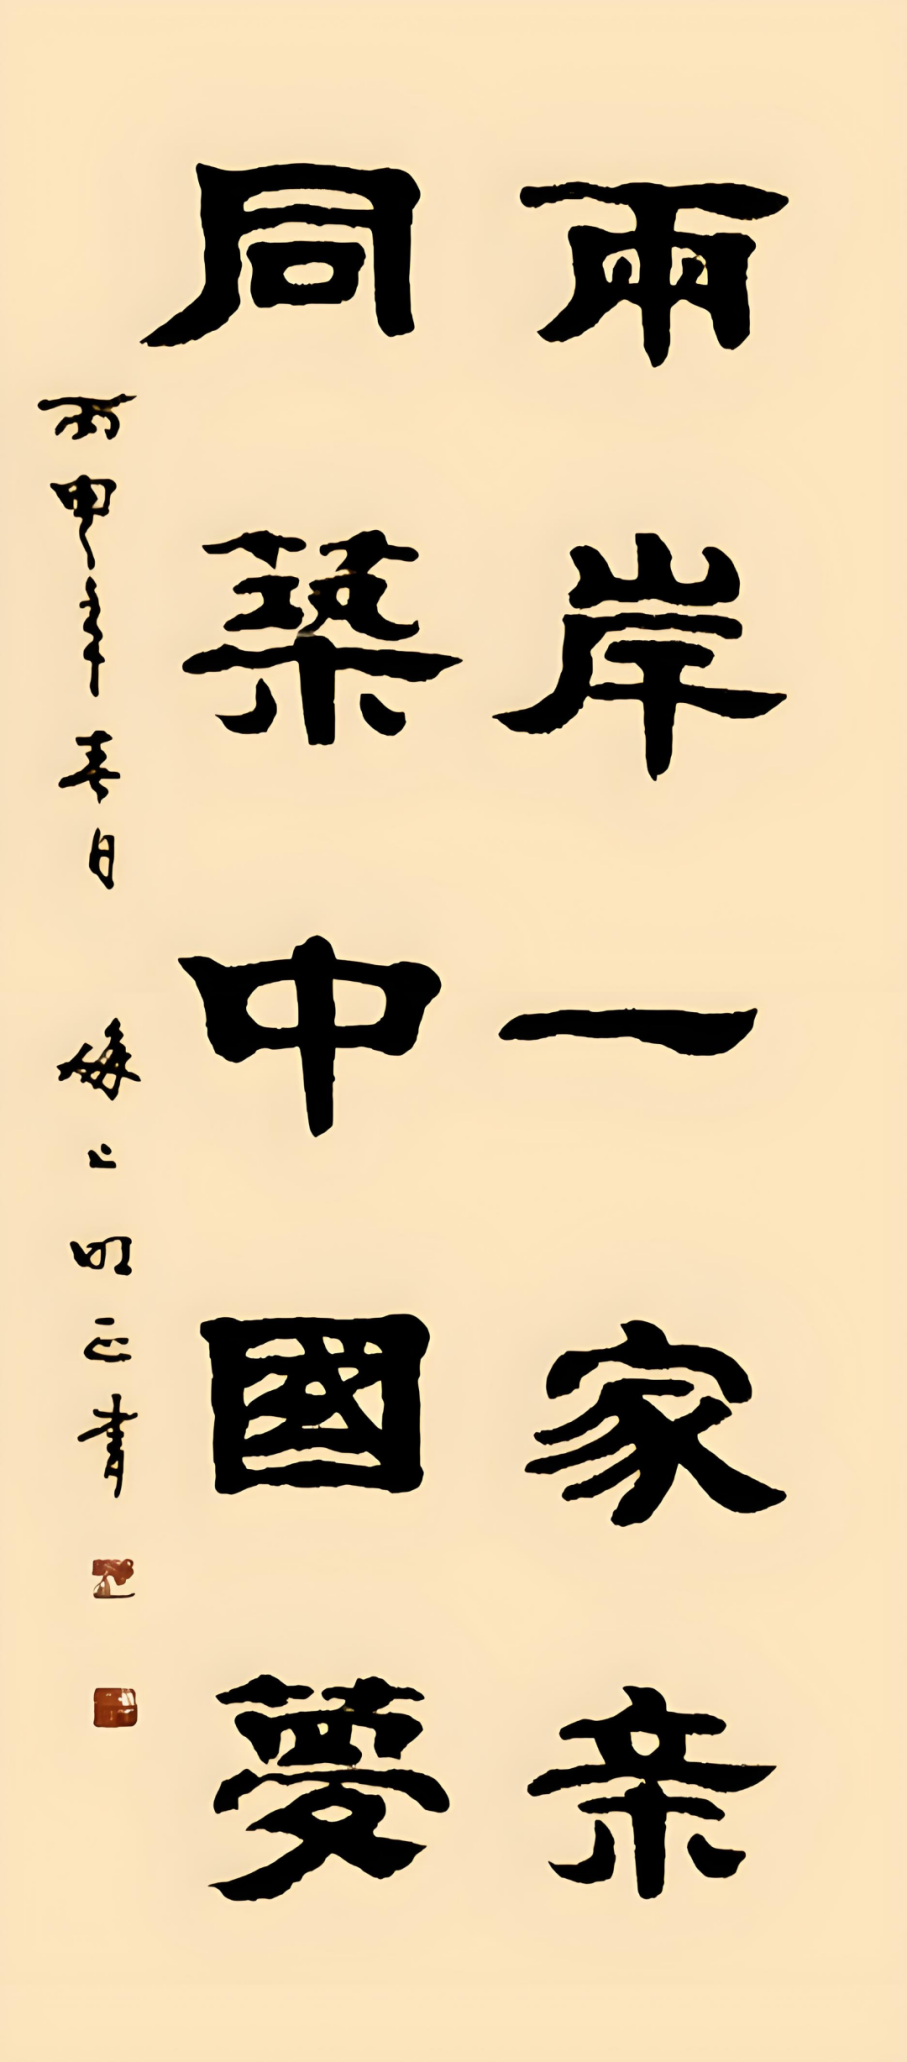 兩岸一家亲
同築中國夢
丙申年春日 海上明正書